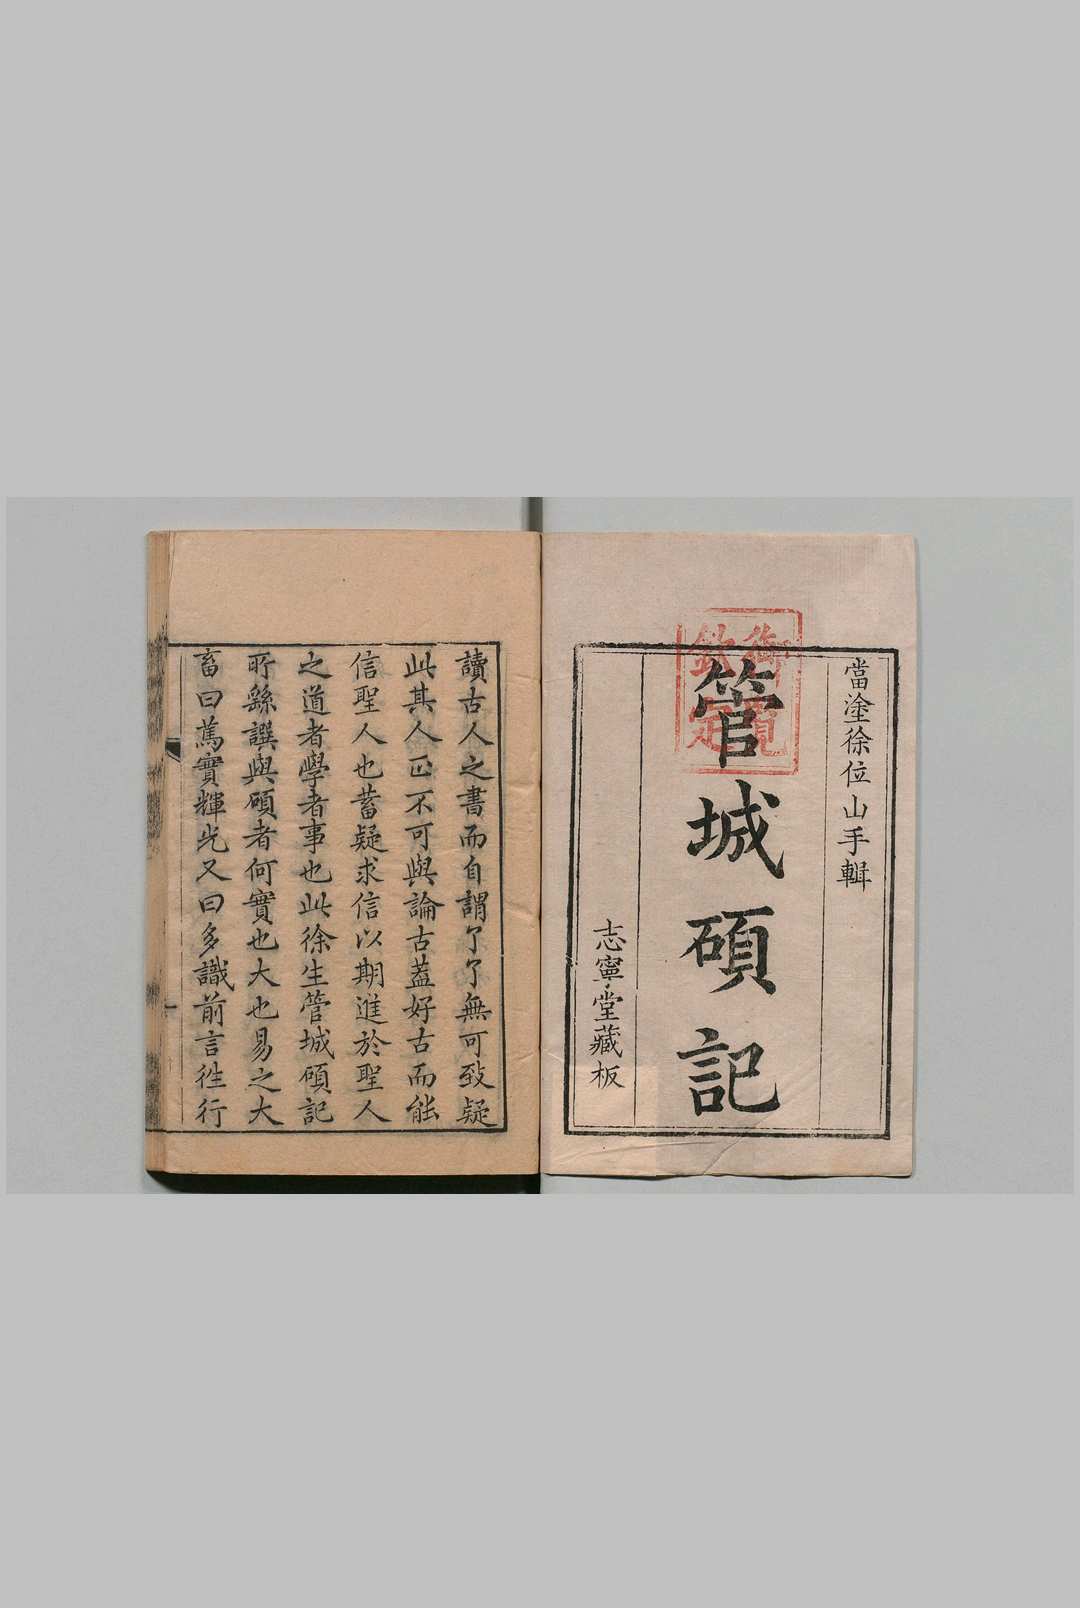 當塗徐位山手輯
御覽
欽定
管城碩記
志寧堂藏板
讀古人之書而自謂了了無可致疑
此其人正不可與論古蓋好古而能
信聖人也蓄疑求信以期進於聖人
之道者學者事也此徐生管城碩記
所繇譔與碩者何實也大也易之大
畜曰篤實輝光又曰多識前言徃行